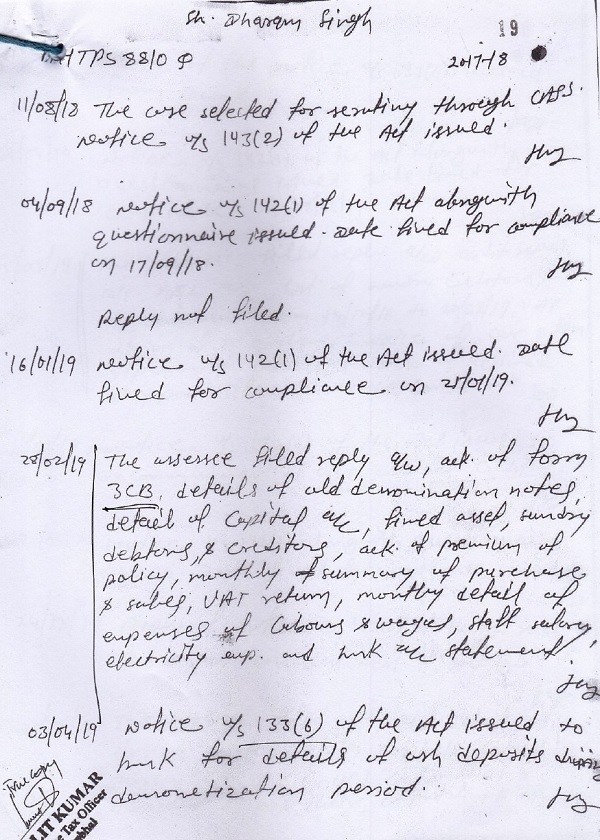 Sh. Dharam Singh
19
HTPS 8810 Q
2017-18
11/08/18 The case selected for scrutiny through CASS.
Notice u/s 143(2) of the Act issued.
04/09/18 Notice u/s 142(1) of the Act alongwith
questionnaire issued. Date fixed for compliance
on 17/09/18.
Reply not filed.
16/01/19 Notice u/s 142(1) of the Act issued. Date
fixed for compliance on 25/01/19.
28/02/19 The assessee filed reply a/w, ack. of form
3CB, details of old denomination notes,
detail of Capital a/c, fixed asset, sundry
debtors, & creditors, ack. of premium of
policy, monthly summary of purchase
& sales, VAT return, monthly detail of
expenses of labours & wages, staff salary,
electricity exp. and bank a/c statement.
03/04/19 Notice u/s 133(6) of the Act issued to
bank for details of cash deposits during
demonetization period.
True copy
LIT KUMAR
e Tax Officer
bhal